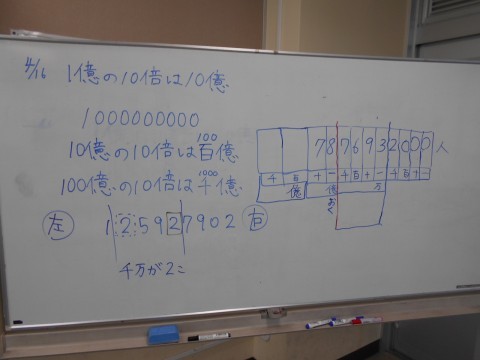 4/16 1億の10倍は10億
1000000000
100
10億の10倍は百億
1000
100億の10倍は千億
左 1 2 5 9 2 7 9 0 2 右
千万が2こ
7 8 7 6 9 3 2 0 0 0 人
千 百 十 一 千 百 十 一 千 百 十 一
億 億 万
おく